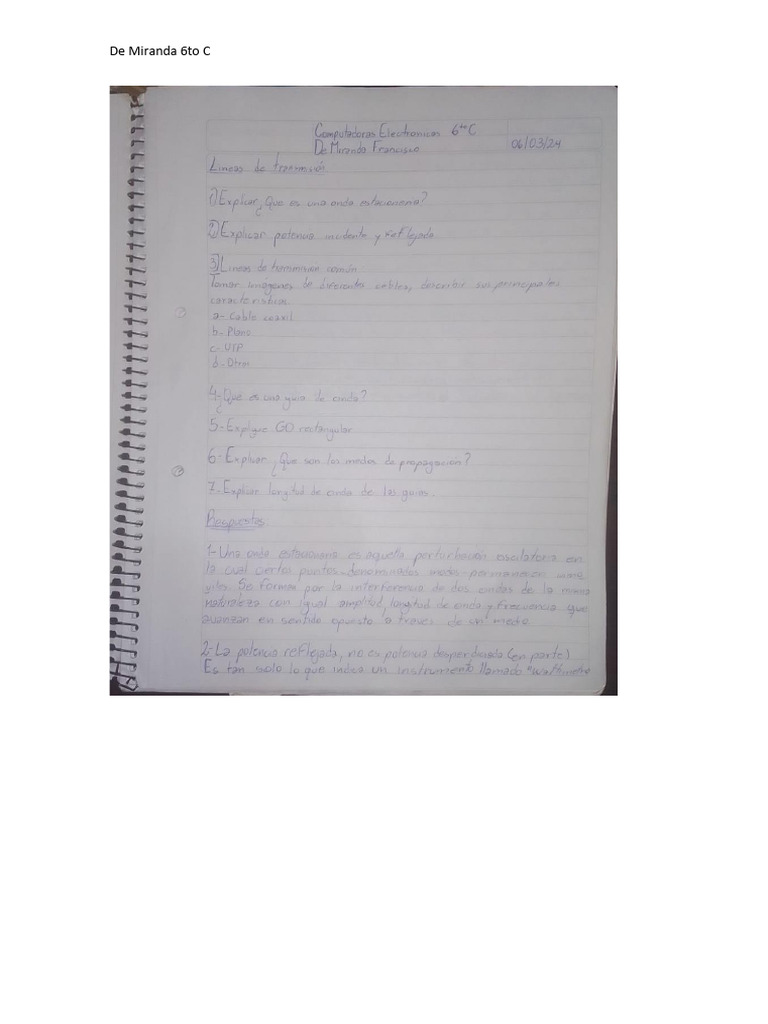 De Miranda 6to C
Computadoras Electronicas 6to C
De Miranda Francisco
06/03/24
Lineas de transmisión
1) Explicar ¿Que es una onda estacionaria?
2) Explicar potencia incidente y reflejada
3) Lineas de transmision común
Tomar imágenes de diferentes cables, describir sus principales
caracteristicas
a- Cable coaxil
b- Plano
c- UTP
d- Otros
4- ¿Que es una guia de onda?
5- Explique GO rectangular
6- Explicar ¿Que son los medios de propagacion?
7- Explicar longitud de onda de las guias.
Respuestas
1- Una onda estacionaria es aquella perturbación oscilatoria en
la cual ciertos puntos, denominados nodos, permanecen inmo
viles. Se forma por la interferencia de dos ondas de la misma
naturaleza con igual amplitud, longitud de onda y frecuencia que
avanzan en sentido opuesto a traves de un medio
2- La potencia reflejada, no es potencia desperdiciada (en parte)
Es tan solo lo que indica un instrumento llamado "wattmetro